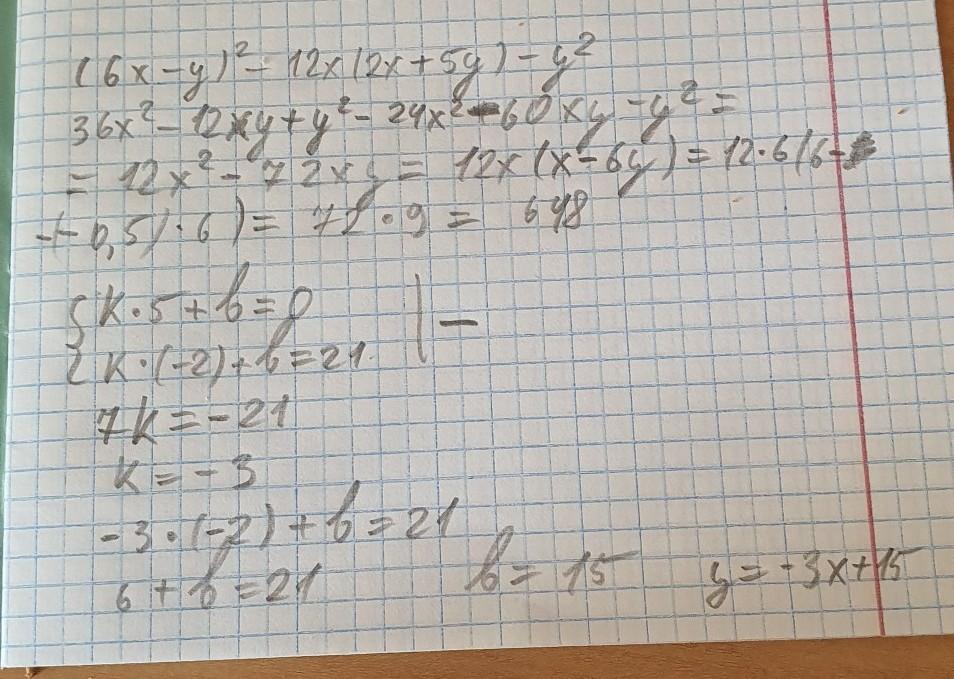 (6x-y)² - 12x(2x+5y) - y²
36x² - 12xy + y² - 24x² - 60xy - y² =
= 12x² - 72xy = 12x(x-6y) = 12·6(6-
-(-0,5)·6) = 72·9 = 648
{ k·5 + b = 0 | -
{ k·(-2) + b = 21
7k = -21
k = -3
-3·(-2) + b = 21
6 + b = 21 b = 15 y = -3x+15